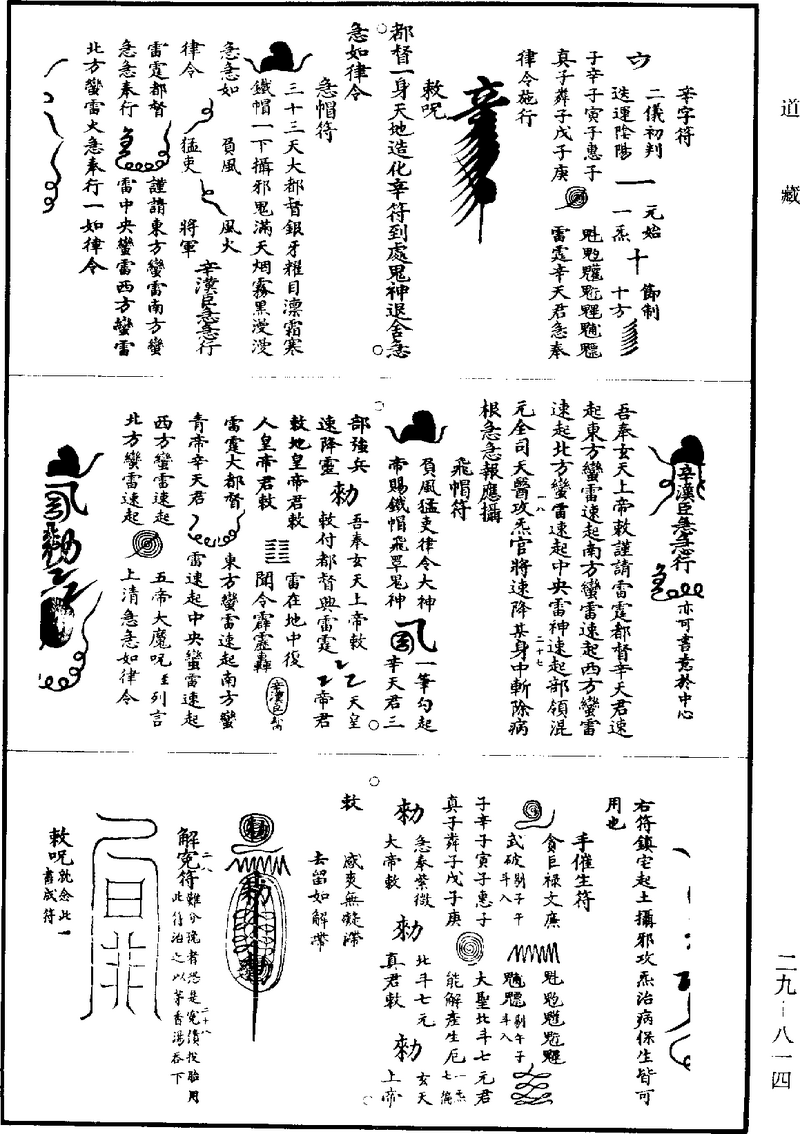 道藏
辛字符
二儀初判
迭運陰陽
元始
一炁
節制
十方
子辛子寅子惠子
真子彝子戊子庚
雷霆辛天君急奉
律令施行
敕呪
都督一身天地造化辛符到處鬼神退舍急
急如律令
急帽符
三十三天大都督銀牙糶目凛霜寒
鐵帽一下攝邪鬼滿天烟霧黑漫漫
急急如
律令
負風
猛吏
風火
將軍
辛漢臣急急行
雷霆都督
謹請東方蠻雷南方蠻
急急奉行
雷中央蠻雷西方蠻雷
北方蠻雷火急奉行一如律令
辛漢臣急急行
亦可書意於中心
吾奉玄天上帝敕謹請雷霆都督辛天君速
起東方蠻雷速起南方蠻雷速起西方蠻雷
速起北方蠻雷速起中央雷神速起部領混
元全司天醫攻炁官將速降某身中斬除病
根急急報應攝
飛帽符
負風猛吏律令大神
一筆勾起
帝賜鐵帽飛罩鬼神
辛天君三
部強兵
吾奉玄天上帝敕
天皇
速降靈
敕付都督與雷霆
帝君
敕地皇帝君敕
雷在地中復
人皇帝君敕
聞令霹靂轟
雷霆大都督
東方蠻雷速起南方蠻
青帝辛天君
雷速起中央蠻雷速起
西方蠻雷速起
五帝大魔呪並列言
北方蠻雷速起
上清急急如律令
右符鎮宅起土攝邪攻炁治病保生皆可
用也
手催生符
貪巨祿文廉
武破
魁𩲃
子辛子寅子惠子
大聖北斗七元君
真子彝子戊子庚
能解產生厄
急奉紫微
大帝敕
北斗七元
真君敕
玄天
上帝
敕
威爽無凝滯
去留如解帶
解冤符
難分娩者恐是冤債投胎用
此符治之以茅香湯吞下
敕呪
就念此一
書成符
二九-八一四